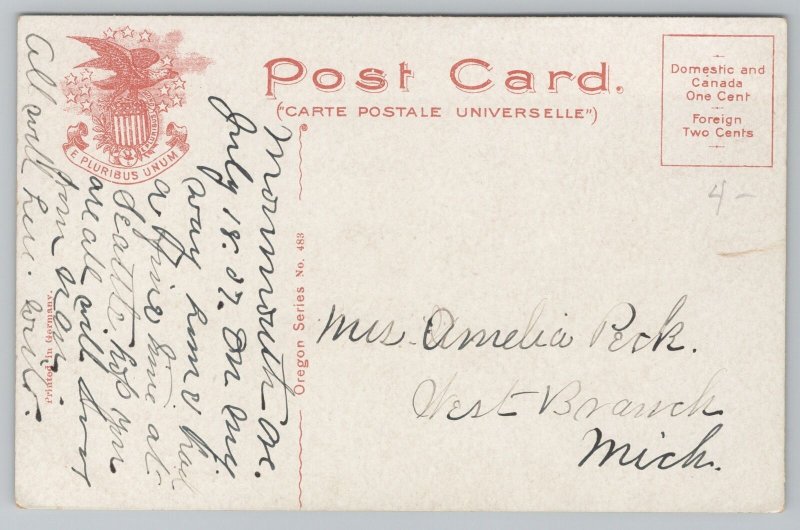 Post Card.
("CARTE POSTALE UNIVERSELLE")
E PLURIBUS UNUM
Domestic and
Canada
One Cent
Foreign
Two Cents
4-
Monmouth Or.
July 18. 07. On my
way home had
a fine time at
Seattle, hope you
are all well
from
All well here. write.
Oregon Series No. 483
Printed in Germany.
Mrs. Amelia Peck.
West Branch
Mich.